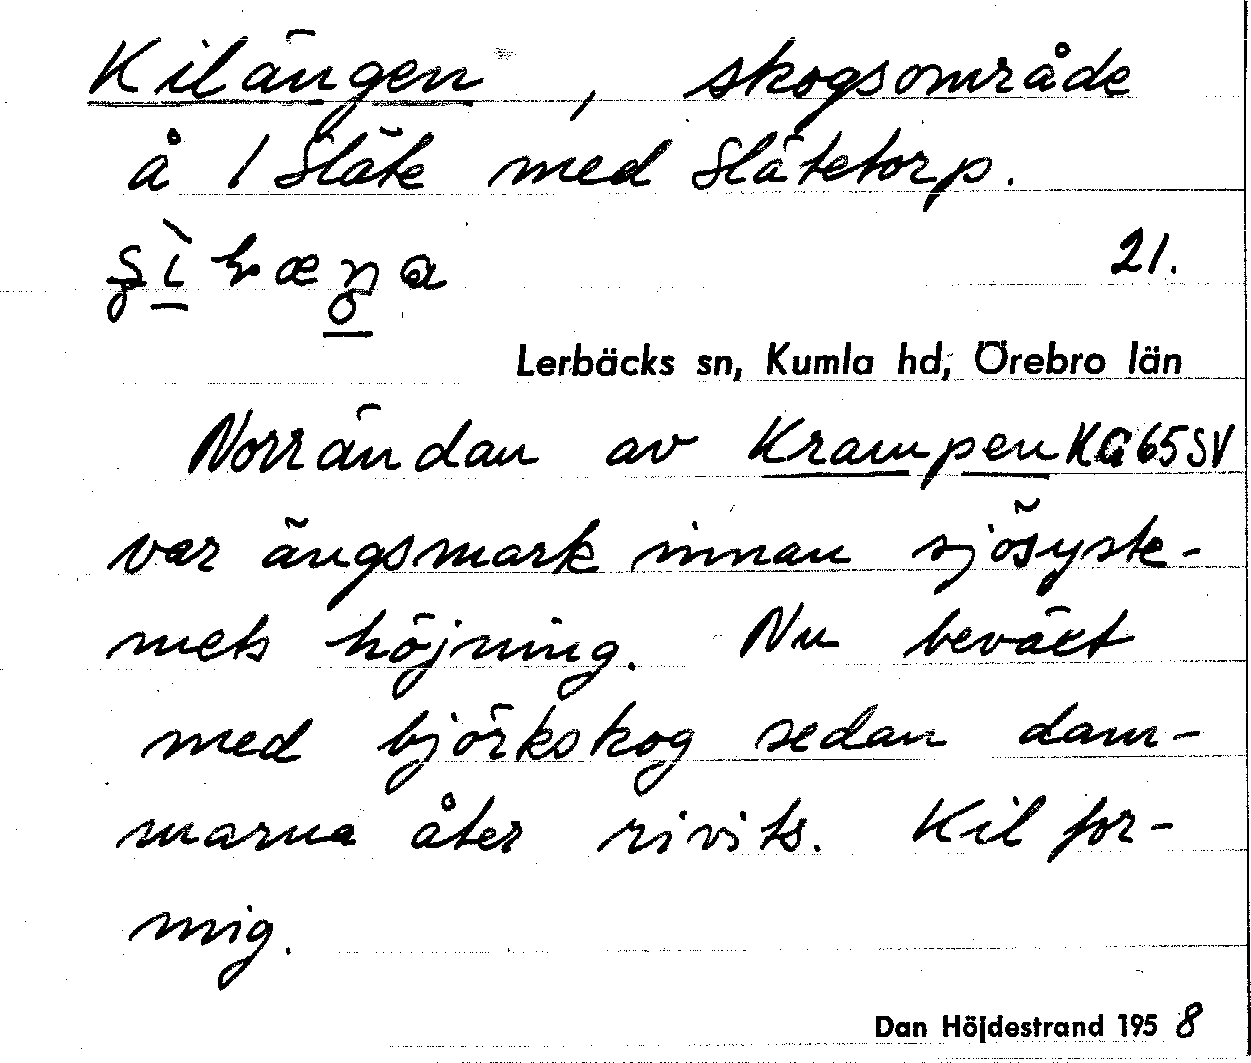 Kilängen, skogsområde
å 1 Släte med Slätetorp.
21.
Lerbäcks sn, Kumla hd, Örebro län
Norrändan av Krampen KG65SV
var ängsmark innan sjösyste-
mets höjning. Nu beväxt
med björkskog sedan dam-
marna åter rivits. Kilfor-
mig.
Dan Höjdestrand 1958